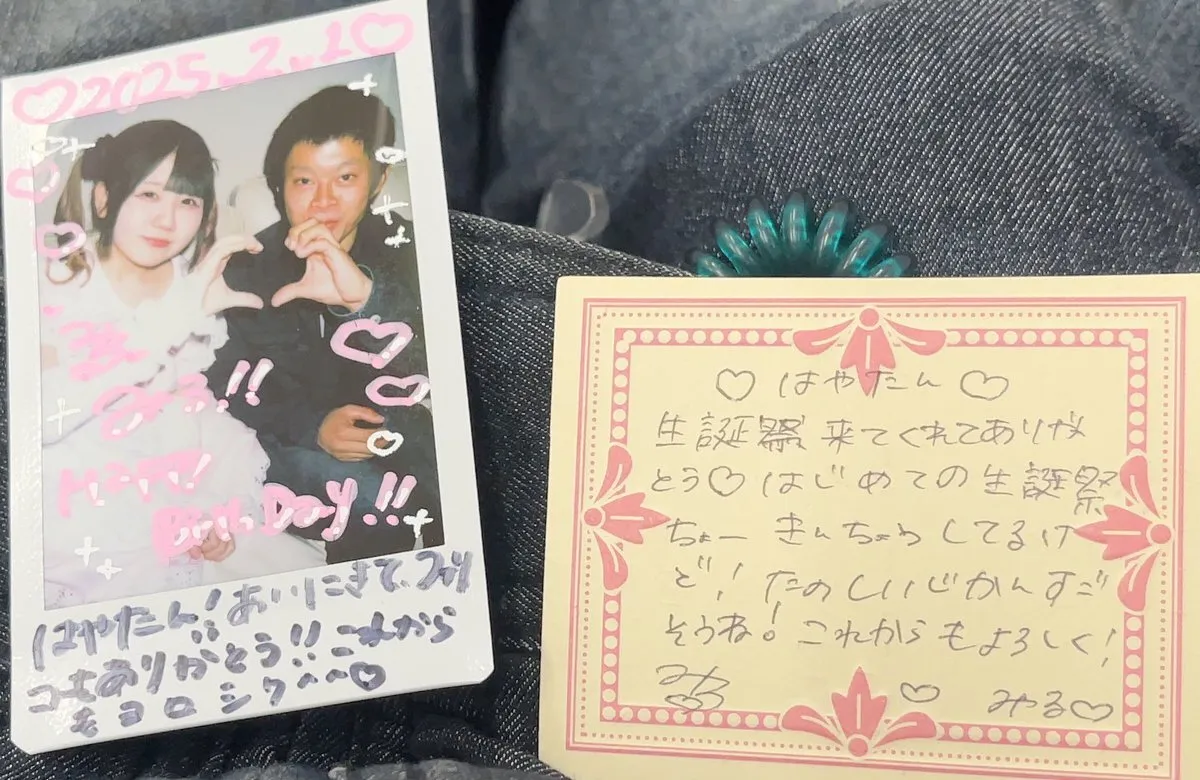 ♡2025.2.1♡
!!
Birth Day!!
はやたん! あいにきてくれ
ありがとう!! これから
もヨロシク^^♡
♡ はやたん ♡
生誕祭来てくれてありが
とう♡はじめての生誕祭
ちょー きんちょうしてるけ
ど! たのしいじかんすご
そうね! これからもよろしく!
みやる♡